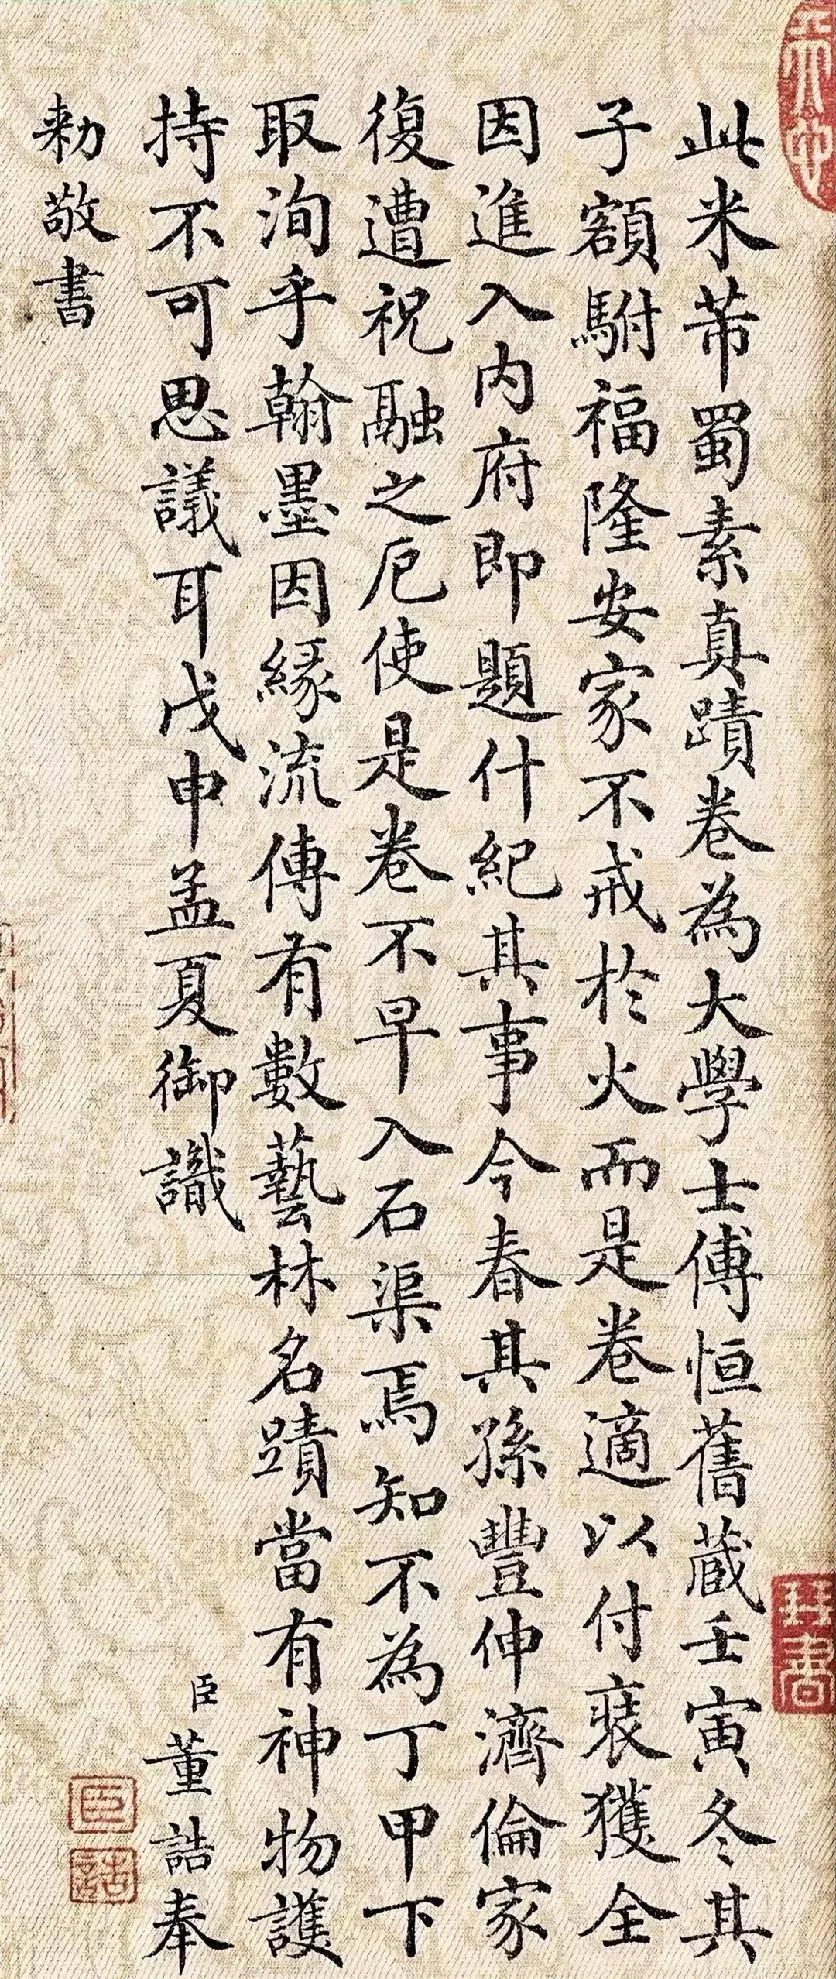 此米芾蜀素真蹟卷為大學士傅恒舊藏壬寅冬其
子額駙福隆安家不戒於火而是卷適以付裝獲全
因進入内府即題什紀其事今春其孫豐伸濟倫家
復遭祝融之厄使是卷不早入石渠焉知不為丁甲下
取洵乎翰墨因緣流傳有數藝林名蹟當有神物護
持不可思議耳戊申孟夏御識
臣董誥奉
勑敬書
臣
誥